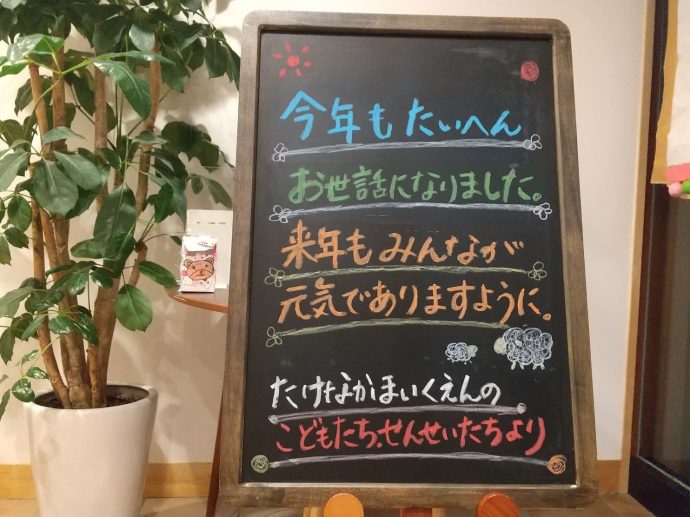 今年もたいへん
お世話になりました。
来年もみんなが
元気でありますように。
たけなかほいくえんの
こどもたち、せんせいたちより